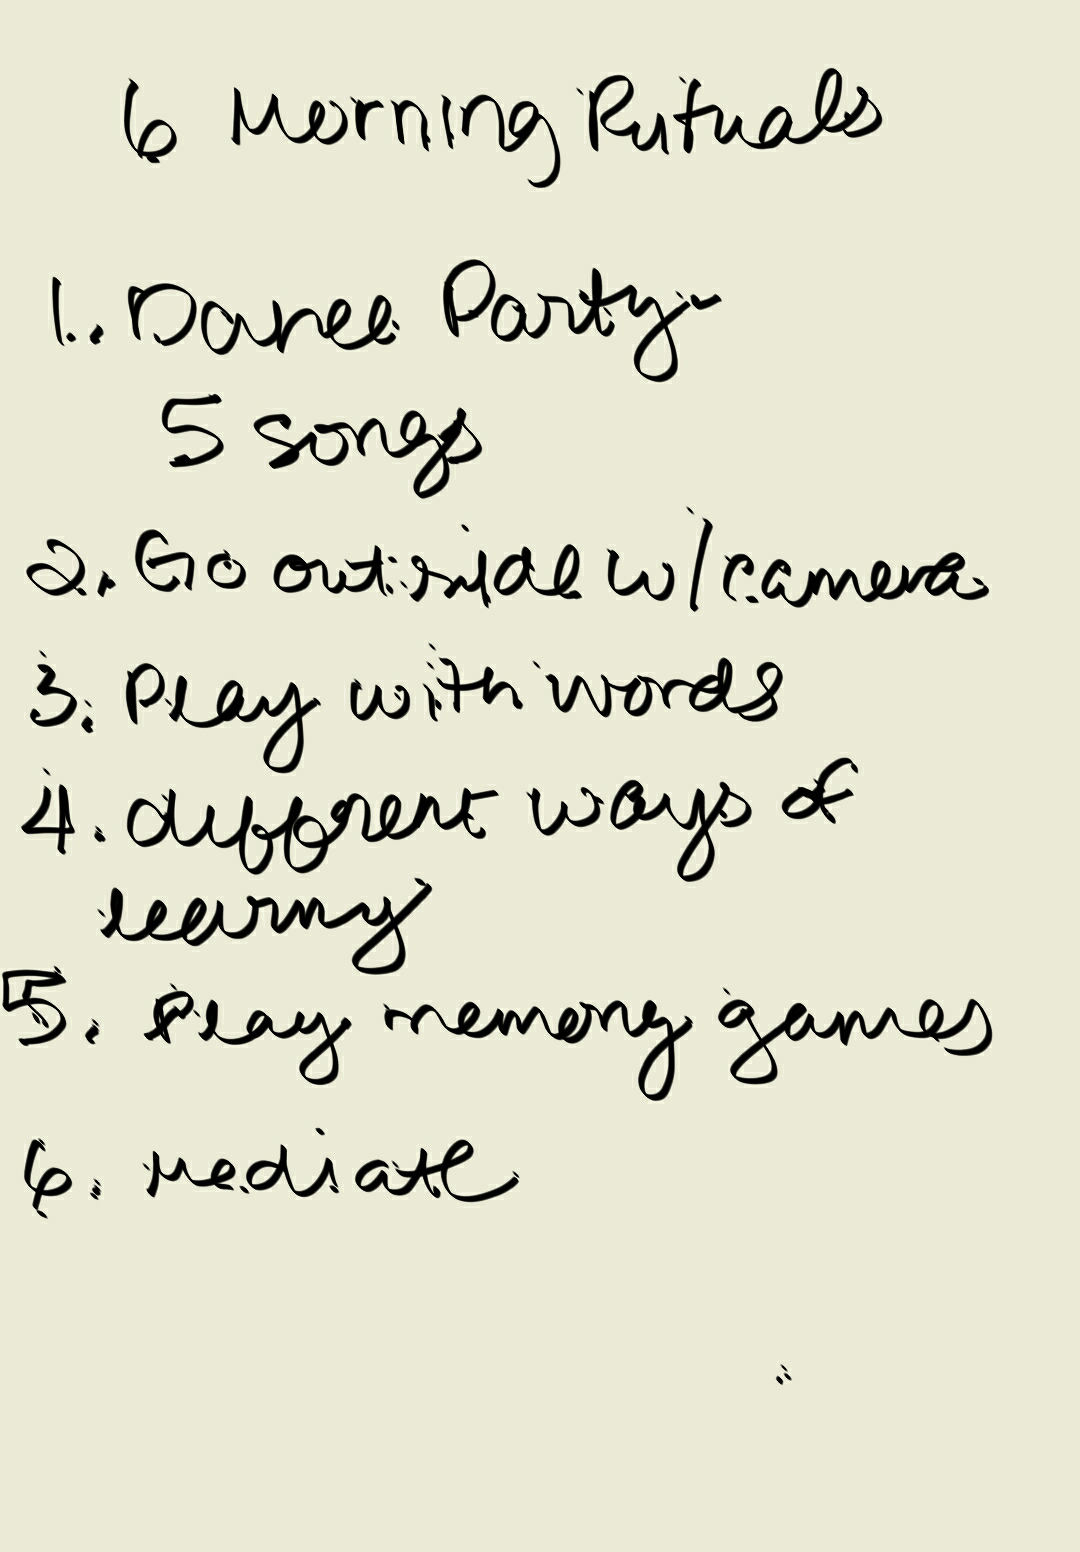 6 Morning Rituals
1. Dance Party -
5 songs
2. Go outside w/camera
3. Play with words
4. different ways of
learning
5. Play memory games
6. Mediate